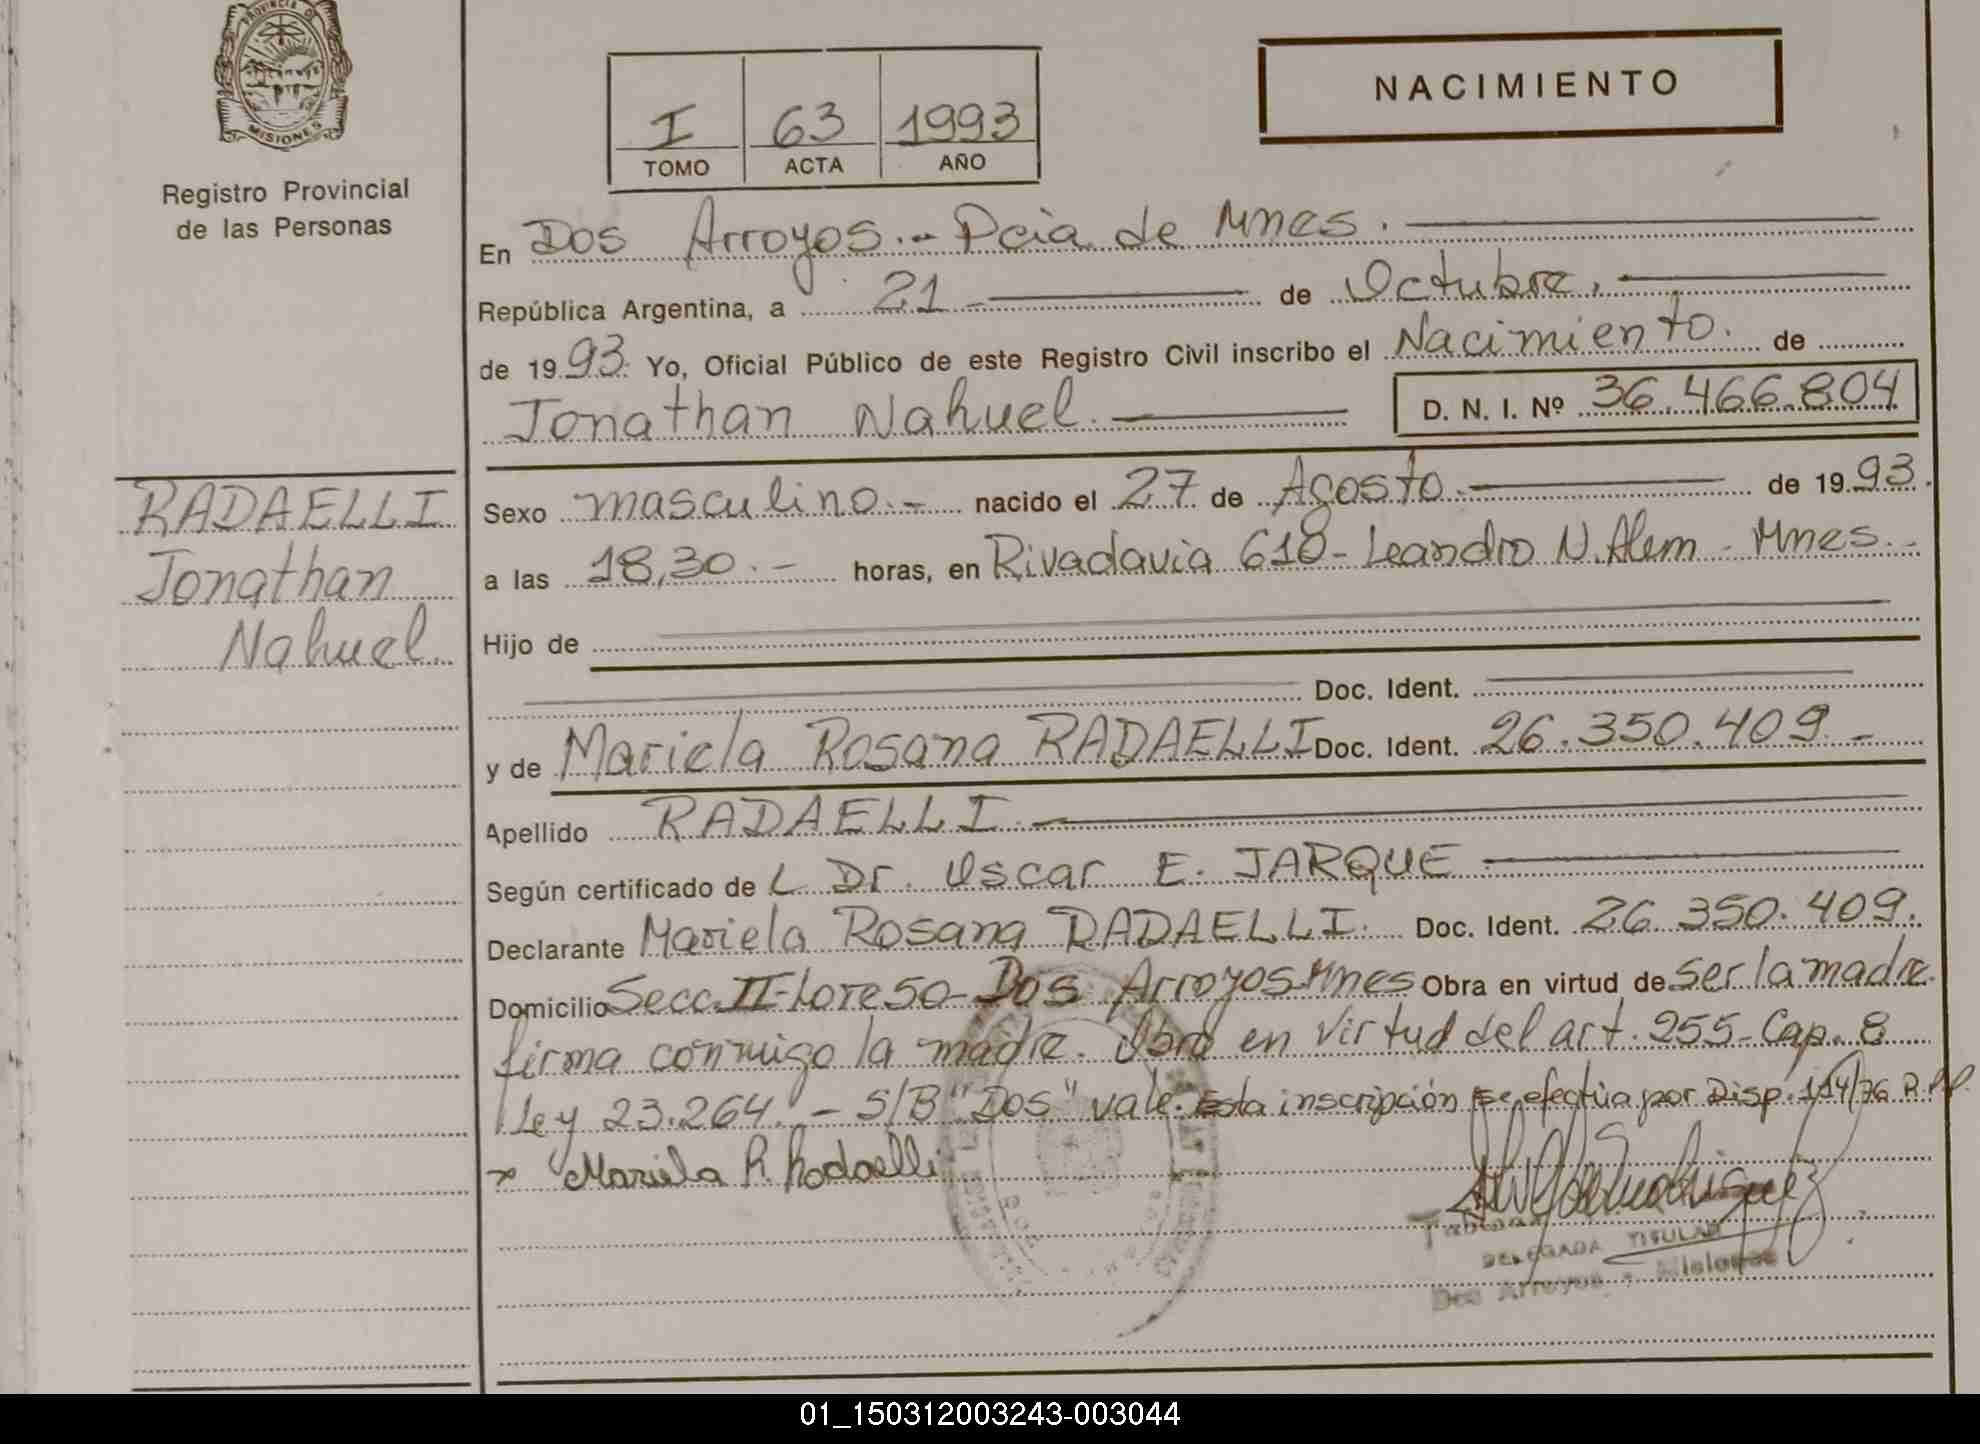 PROVINCIA DE
MISIONES
Registro Provincial
de las Personas
I 63 1993
TOMO ACTA AÑO
NACIMIENTO
En Dos Arroyos.- Pcia de Mnes.
República Argentina, a 21 de Octubre,
de 1993. Yo, Oficial Público de este Registro Civil inscribo el Nacimiento. de
Jonathan Nahuel. D. N. I. Nº 36.466.804
RADAELLI
Jonathan
Nahuel.
Sexo masculino.- nacido el 27 de Agosto.- de 1993.
a las 18,30.- horas, en Rivadavia 618- Leandro N. Alem - Mnes.-
Hijo de
Doc. Ident.
y de Mariela Rosana RADAELLI Doc. Ident. 26.350.409.-
Apellido RADAELLI.-
Según certificado de L Dr. Oscar E. JARQUE
Declarante Mariela Rosana RADAELLI. Doc. Ident. 26.350.409.
Domicilio Secc. II-Loreso- Dos Arroyos Mnes Obra en virtud de ser la madre.
firma conmigo la madre. Obro en virtud del art. 255- Cap. 8
Ley 23.264.- S/B "Dos" vale. Esta inscripción se efectúa por Disp. 114/76 R.P.P.
x Mariela R. Radaelli
DELEGADA TITULAR
Dos Arroyos - Misiones
01_150312003243-003044